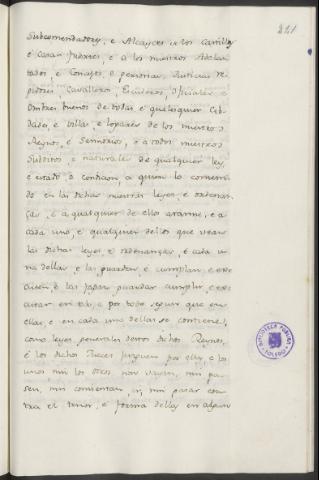 221
Subcomendadores, e Alcaydes de los Castillos
e Casas fuertes, e a los nuestros Adelan
tados, e Concejos, e personas, Justicias, Re
gidores, Cavalleros, Escuderos, Oficiales, e
Ombres buenos de todas e qualesquier Cib
dades, e villas, e logares de los nuestros
Reynos, e Sennorios, e a todos nuestros
Subditos, e naturales de qualquier ley
e estado, o condicion, a quien lo conteni
do en las dichas nuestras leyes, e ordenan
ças, e a qualquier de ellos atanne, e a
cada uno, e qualquier dellos que vean
las dichas leyes e ordenanças, e cada u
na dellas, e las guarden e cumplan, e exe
cuten, e las fagan guardar cumplir, e exe
cutar en todo, e por todo segun que en
ellas, e en cada una dellas se contiene,
como leyes generales destos dichos Reynos,
e los dichos Jueces juzguen por ellas, e los
unos, nin los otros non vayan, nin pa
sen, nin consientan, ir, nin pasar con
tra el tenor, e forma dellas en algun
BIBLIOTECA PUBLICA
TOLEDO